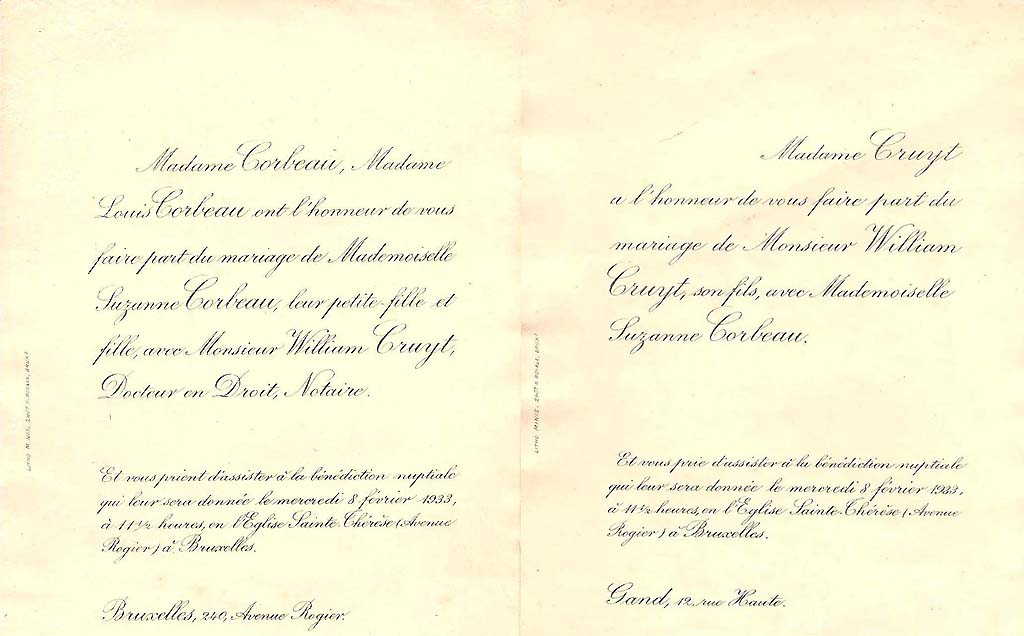 Madame Corbeau, Madame
Louis Corbeau ont l'honneur de vous
faire part du mariage de Mademoiselle
Suzanne Corbeau, leur petite-fille et
fille, avec Monsieur William Cruyt,
Docteur en Droit, Notaire.
Et vous prient d'assister à la bénédiction nuptiale
qui leur sera donnée le mercredi 8 février 1933,
à 11 1/2 heures, en l'Eglise Sainte-Thérèse (Avenue
Rogier) à Bruxelles.
Bruxelles, 240, Avenue Rogier.
LITHO
Madame Cruyt
a l'honneur de vous faire part du
mariage de Monsieur William
Cruyt, son fils, avec Mademoiselle
Suzanne Corbeau.
Et vous prie d'assister à la bénédiction nuptiale
qui leur sera donnée le mercredi 8 février 1933,
à 11 1/2 heures, en l'Eglise Sainte-Thérèse (Avenue
Rogier) à Bruxelles.
Gand, 12, rue Haute.
LITHO